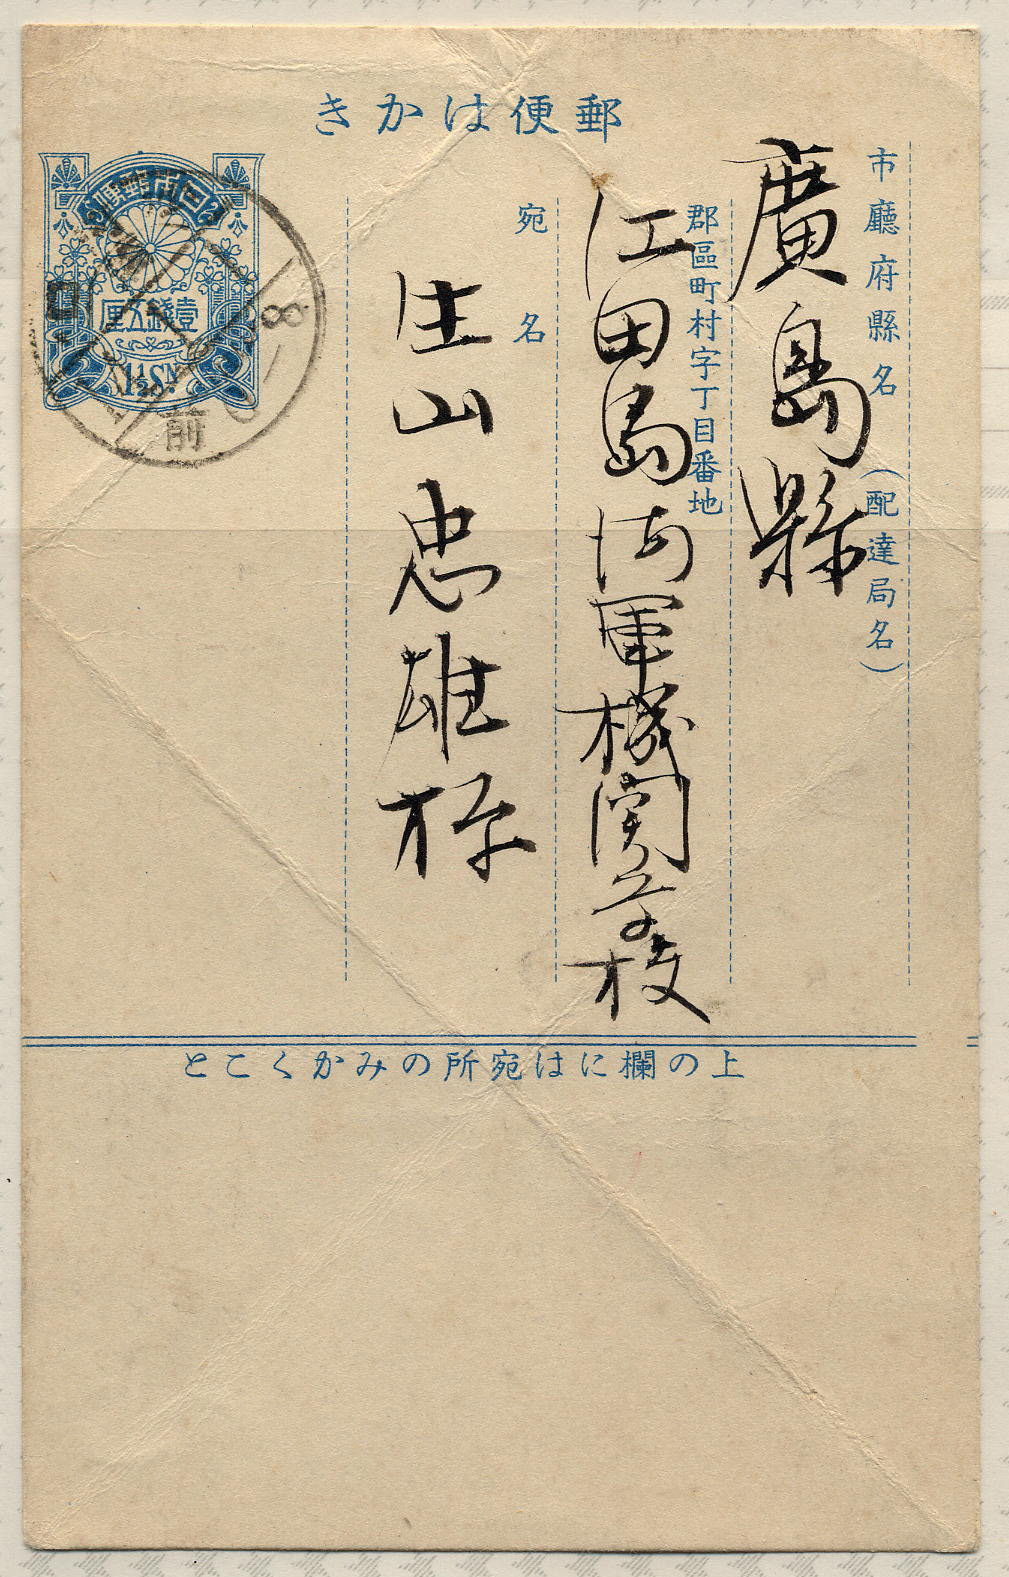 郵便はかき
市廳府縣名(配達局名)
廣島縣
郡區町村字丁目番地
江田島海軍機関学校
宛名
庄山忠雄様
大日本帝國郵便
壹錢五厘
1½Sn
前
上の欄には宛所のみかくこと